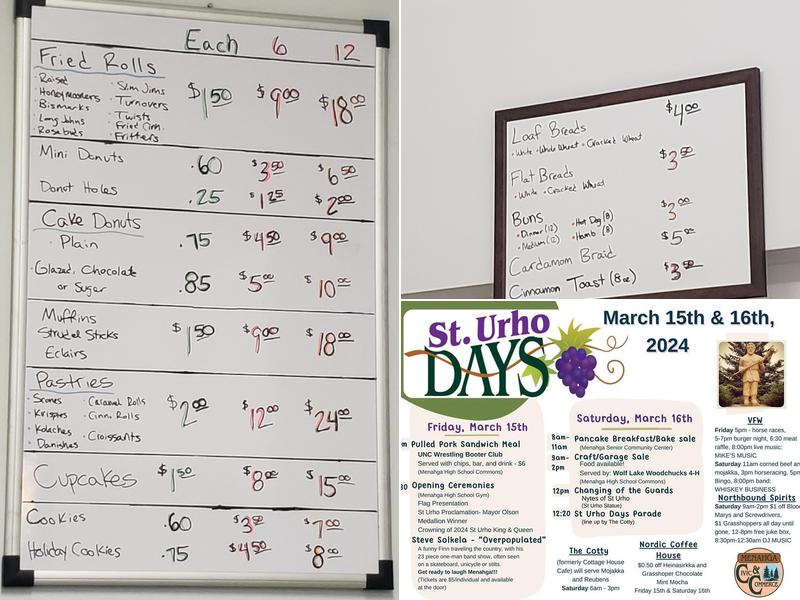 Each 6 12
Fried Rolls
· Raised · Slim Jims
· Honeymooners · Turnovers
· Bismarks · Twists
· Long Johns · Fried Cinn.
· Rosebuds · Fritters
$1.50 $9.00 $18.00
Mini Donuts .60 $3.50 $6.50
Donut Holes .25 $1.25 $2.00
Cake Donuts
· Plain .75 $4.50 $9.00
· Glazed, Chocolate
or Sugar .85 $5.00 $10.00
Muffins
Strudel Sticks
Eclairs
$1.50 $9.00 $18.00
Pastries
· Scones · Caramel Rolls
· Krispies · Cinn. Rolls
· Kolaches · Croissants
· Danishes
$2.00 $12.00 $24.00
Cupcakes $1.50 $8.00 $15.00
Cookies .60 $7.00
Holiday Cookies .75 $4.50 $8.00
Loaf Breads $4.00
· White · Whole Wheat · Cracked Wheat
Flat Breads $3.50
· White · Cracked Wheat
Buns $3.00
· Dinner (12) · Hot Dog (8)
· Medium (12) · Hamb (8)
Cardamom Braid $5.00
Cinnamon Toast (8oz)
St. Urho
DAYS
March 15th & 16th,
2024
Friday, March 15th
Pulled Pork Sandwich Meal
UNC Wrestling Booter Club
Served with chips, bar, and drink - $6
(Menahga High School Commons)
30 Opening Ceremonies
(Menahga High School Gym)
Flag Presentation
St Urho Proclamation- Mayor Olson
Medallion Winner
Crowning of 2024 St Urho King & Queen
Steve Solkela - "Overpopulated"
A funny Finn traveling the country, with his
23 piece one-man band show, often seen
on a skateboard, unicycle or stilts.
Get ready to laugh Menahga!!!
(Tickets are $5/individual and available
at the door)
Saturday, March 16th
8am-
11am
Pancake Breakfast/Bake sale
(Menahga Senior Community Center)
9am-
2pm
Craft/Garage Sale
Food available!
Served by: Wolf Lake Woodchucks 4-H
(Menahga High School Commons)
12pm Changing of the Guards
Nytes of St Urho
(St Urho Statue)
12:20 St Urho Days Parade
(line up by The Cotty)
The Cotty
(formerly Cottage House
Cafe) will serve Mojakka
and Reubens
Saturday 6am - 3pm
Nordic Coffee
House
$0.50 off Heinasirkka and
Grasshoper Chocolate
Mint Mocha
Friday 15th & Saturday 16th
VFW
Friday 5pm - horse races,
5-7pm burger night, 6:30 meat
raffle, 8:00pm live music:
MIKE'S MUSIC
Saturday 11am corned beef an
mojakka, 3pm horseracing, 5pm
Bingo, 8:00pm band:
WHISKEY BUSINESS
Northbound Spirits
Saturday 9am-2pm $1 off Bloo
Marys and Screwdrivers,
$1 Grasshoppers all day until
gone, 12-8pm free juke box,
8:30pm-12:30am DJ MUSIC
MENAHGA
CIVIC &
COMMERCE